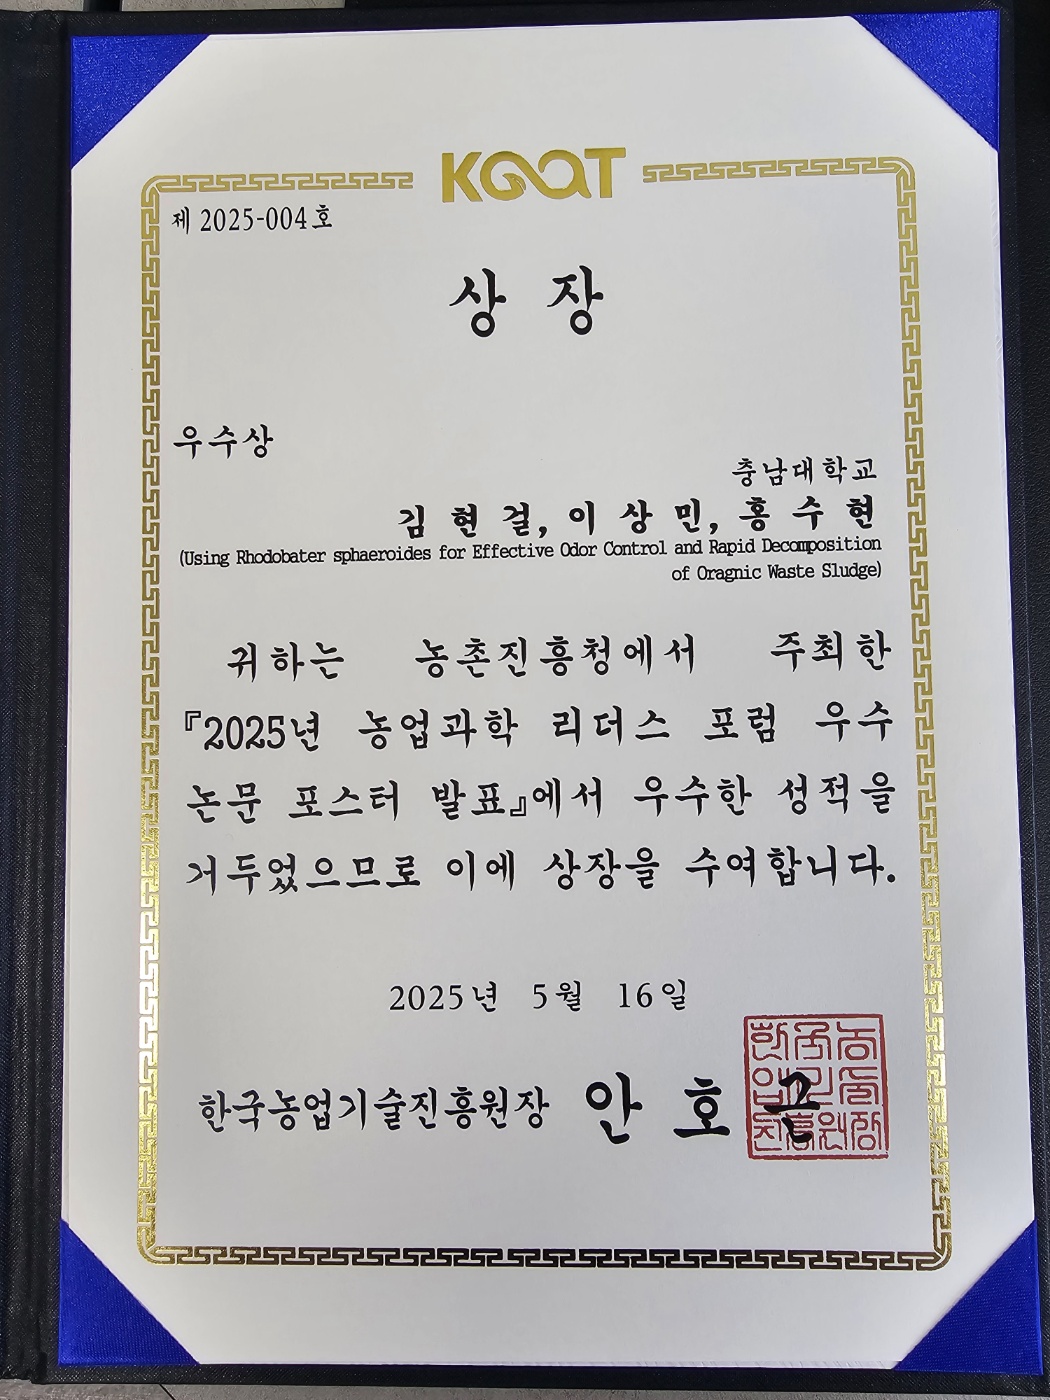 KOAT
제 2025-004호
상 장
우수상
충남대학교
김 현 걸, 이 상 민, 홍 수 현
(Using Rhodobater sphaeroides for Effective Odor Control and Rapid Decomposition
of Oragnic Waste Sludge)
귀하는 농촌진흥청에서 주최한
『2025년 농업과학 리더스 포럼 우수
논문 포스터 발표』에서 우수한 성적을
거두었으므로 이에 상장을 수여합니다.
2025년 5월 16일
한국농업기술진흥원장 안 호 근